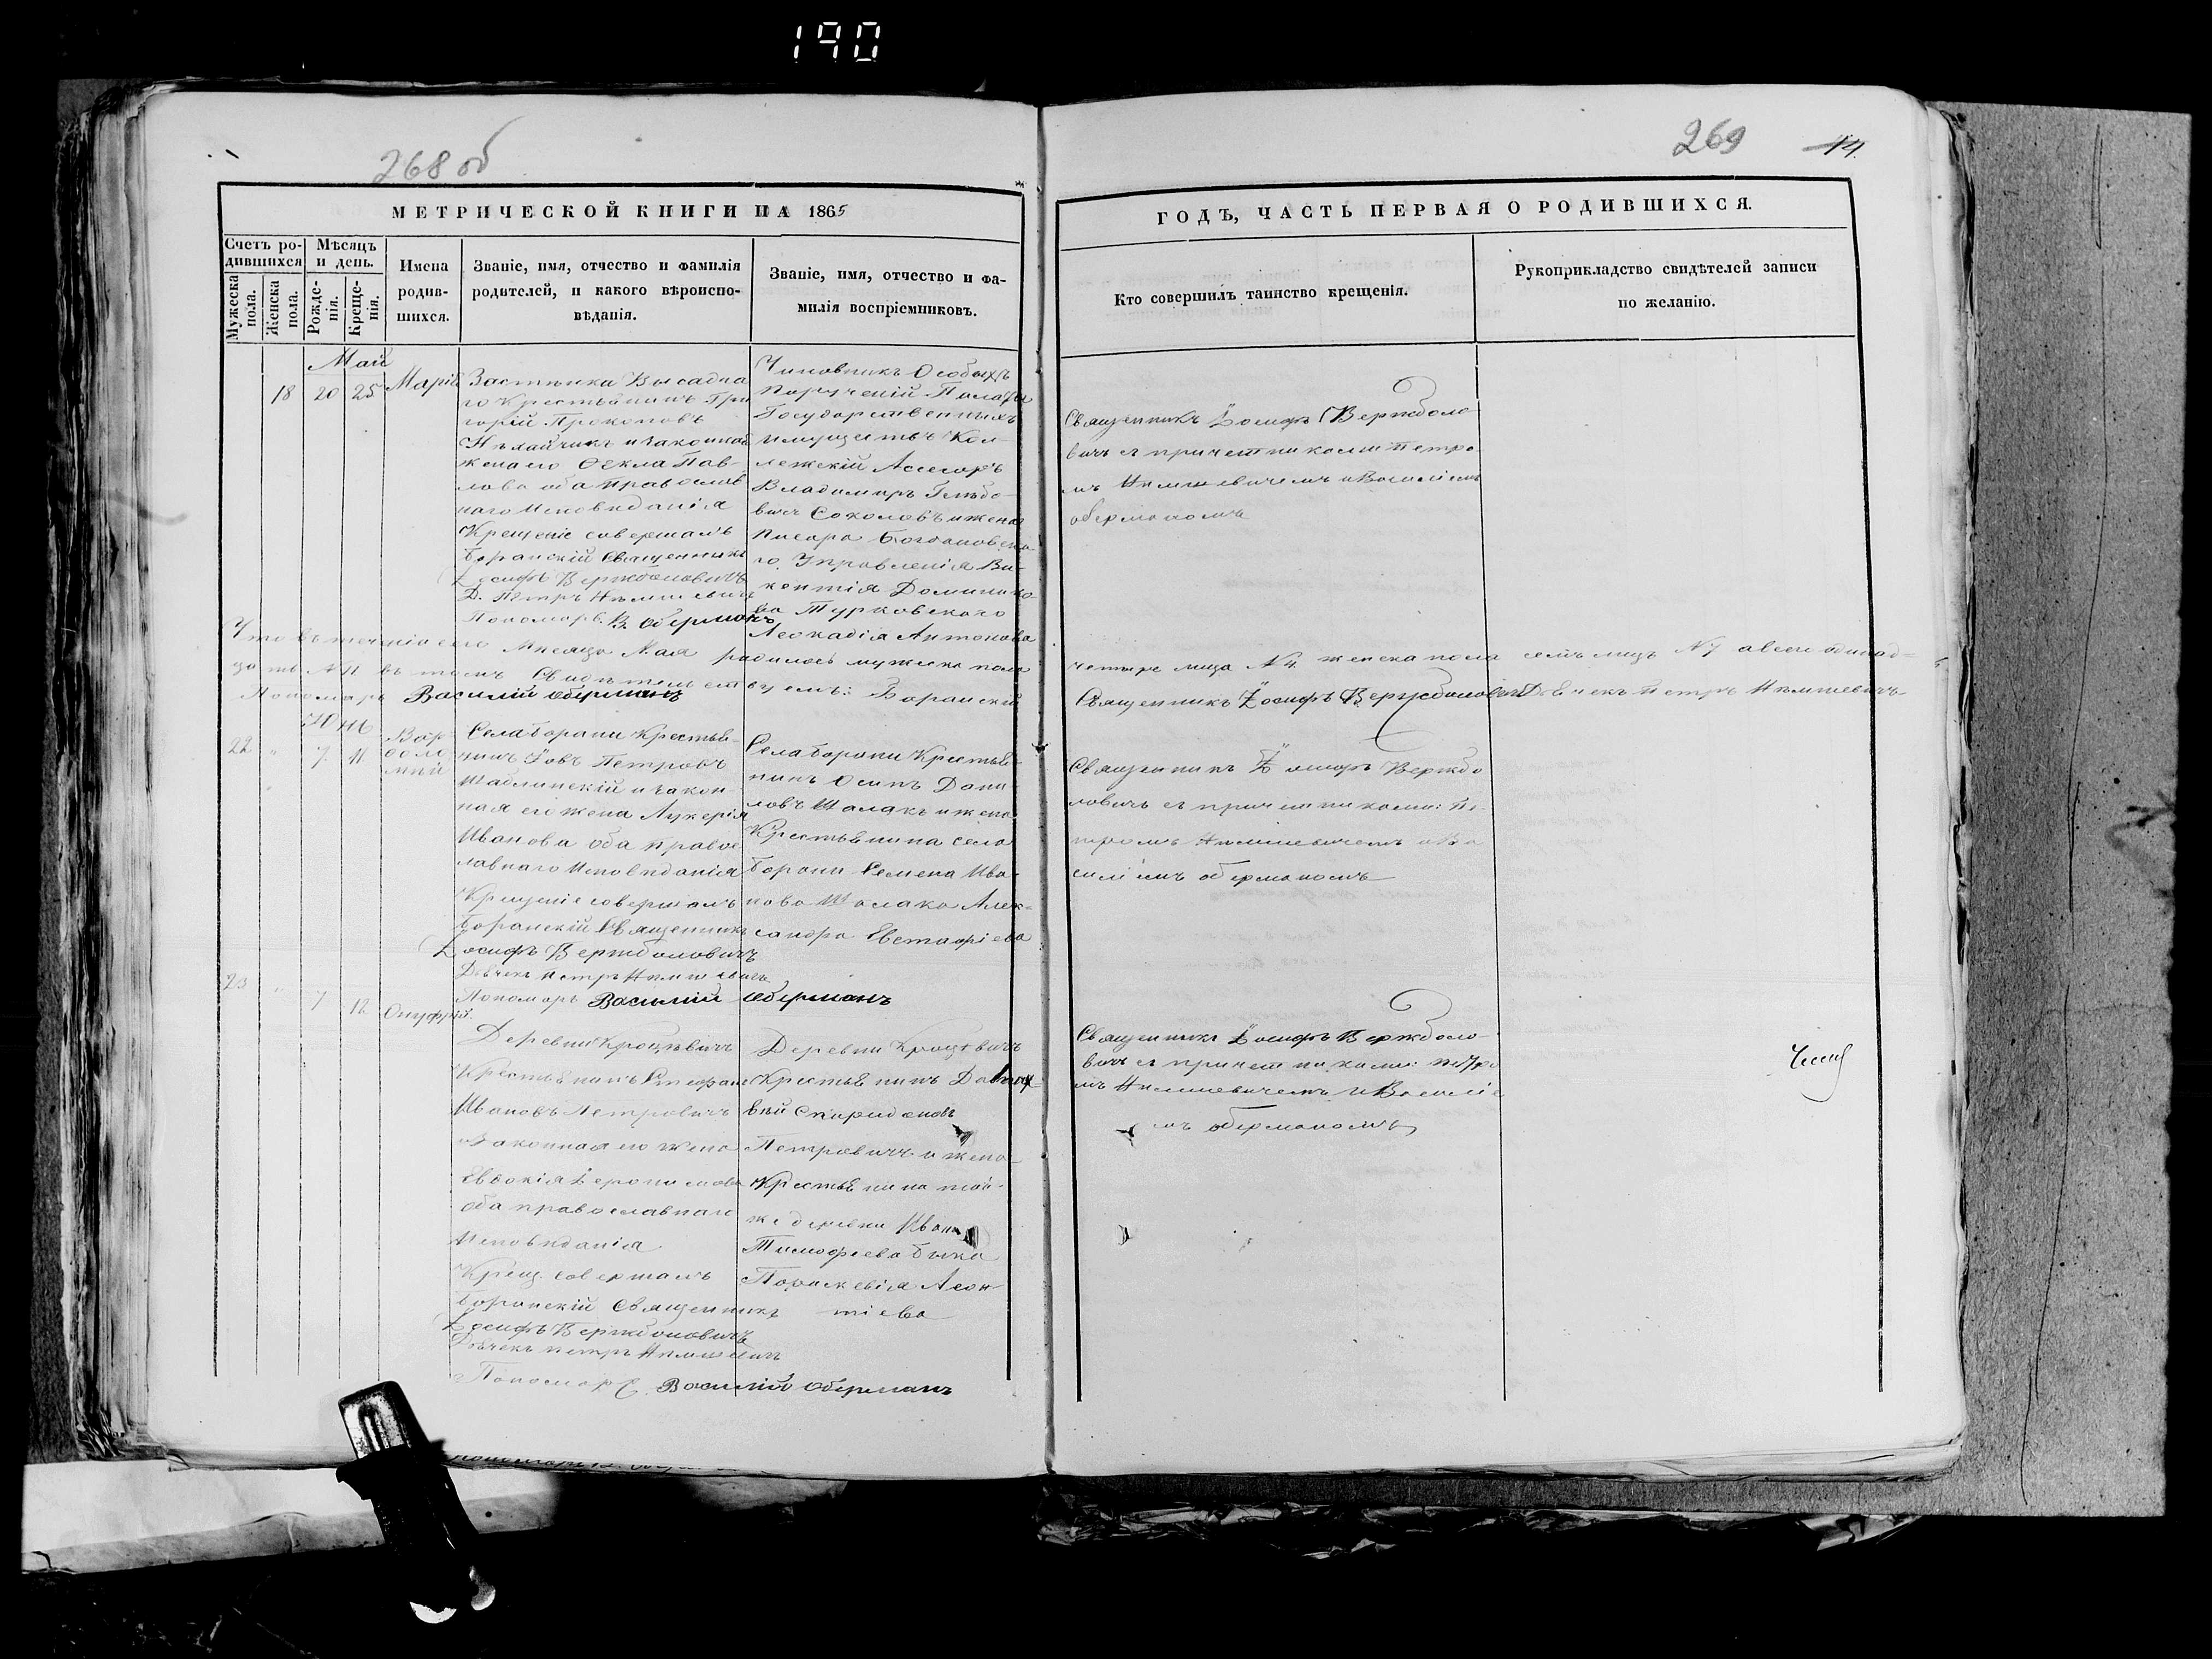 190
268 об
269
14.
МЕТРИЧЕСКОЙ КНИГИ НА 1865
ГОДЪ, ЧАСТЬ ПЕРВАЯ О РОДИВШИХСЯ.
Счетъ ро-
дившихся
Мѣсяцъ
и день.
Мужеска
пола.
Женска
пола.
Рожде-
нія.
Креще-
нія.
Имена
родив-
шихся.
Званіе, имя, отчество и фамилія
родителей, и какого вѣроиспо-
вѣданія.
Званіе, имя, отчество и фа-
милія воспріемниковъ.
Кто совершилъ таинство крещенія.
Рукоприкладство свидѣтелей записи
по желанію.
Май
18 20 25 Марія
Застѣнка Высадна
го Крестьянинъ Гри
горій Прокоповъ
и законная
жена его Ѳекла Пав-
лова оба православ
наго Исповѣданія
Крещеніе совершалъ
Боранскій Священникъ
Іосифъ Вержболовичъ
Д. Петръ Нѣмшевичъ
Пономарь В. Оберманъ
Чиновникъ Особыхъ
Порученій Палаты
Государственныхъ
имуществъ Кол-
лежскій Асессоръ
Владимиръ Глѣбо-
вичъ Соколовъ и жена
писара Богдановска-
го Управленія Ви-
кентія Доминико
ва Турковскаго
Леокадія Антонова
Священникъ Іосифъ Вержболо
вичъ съ причетниками Петро
мъ Нѣмшевичемъ и Василіемъ
Оберманомъ
Что въ теченіи сего Мѣсяца Мая родилось мужеска пола четыре лица №4. женска пола семь лицъ №7 а всего одинад-
цать №11 въ томъ Свидѣтельствуемъ: Боранскій Священникъ Іосифъ Вержболовичъ Дьячекъ Петръ Нѣмшевичъ
Пономарь Василій Оберманъ
Іюнь
22 " 7. 11
Вар
ѳоло
мей
Села Борани Крестья-
нинъ Іовъ Петровъ
Шаблинскій и закон-
ная его жена Лукерія
Иванова оба правос
лавнаго Исповѣданія
Крещеніе совершалъ
Боранскій Священникъ
Іосифъ Вержболовичъ
Дьячекъ Петръ Нѣмшевичъ
Пономарь Василій Оберманъ
Села Борани Крестья-
нинъ Осипъ Дани-
ловъ Шалакъ и жена
Крестьянина села
Борани Семена Ива-
нова Шалака Алек-
сандра Евстафіева
Священникъ Іосифъ Вержбо
ловичъ съ причетниками: Пе-
тромъ Нѣмшевичемъ и Ва
силіемъ Оберманомъ
23 " 7 12 Онуфрій.
Деревни Кроцѣвичъ
Крестьянинъ Стефанъ
Ивановъ Петровичъ
и Законная его жена
Евдокія Іеронимова
оба православнаго
Исповѣданія
Крещ. совершалъ
Боранскій Священникъ
Іосифъ Вержболовичъ
Дьячекъ Петръ Нѣмшевичъ
Пономарь Василій Оберманъ
Деревни Кроцѣвичъ
Крестьянинъ
Спиридоновъ
Петровичъ и жена
Крестьянина той-
же деревни Ивана
Тимофеева Бычка
Параскевія Леон-
тіева
Священникъ Іосифъ Вержболо-
вичъ съ причетниками: Петро
мъ Нѣмшевичемъ и Василіе
мъ Оберманомъ